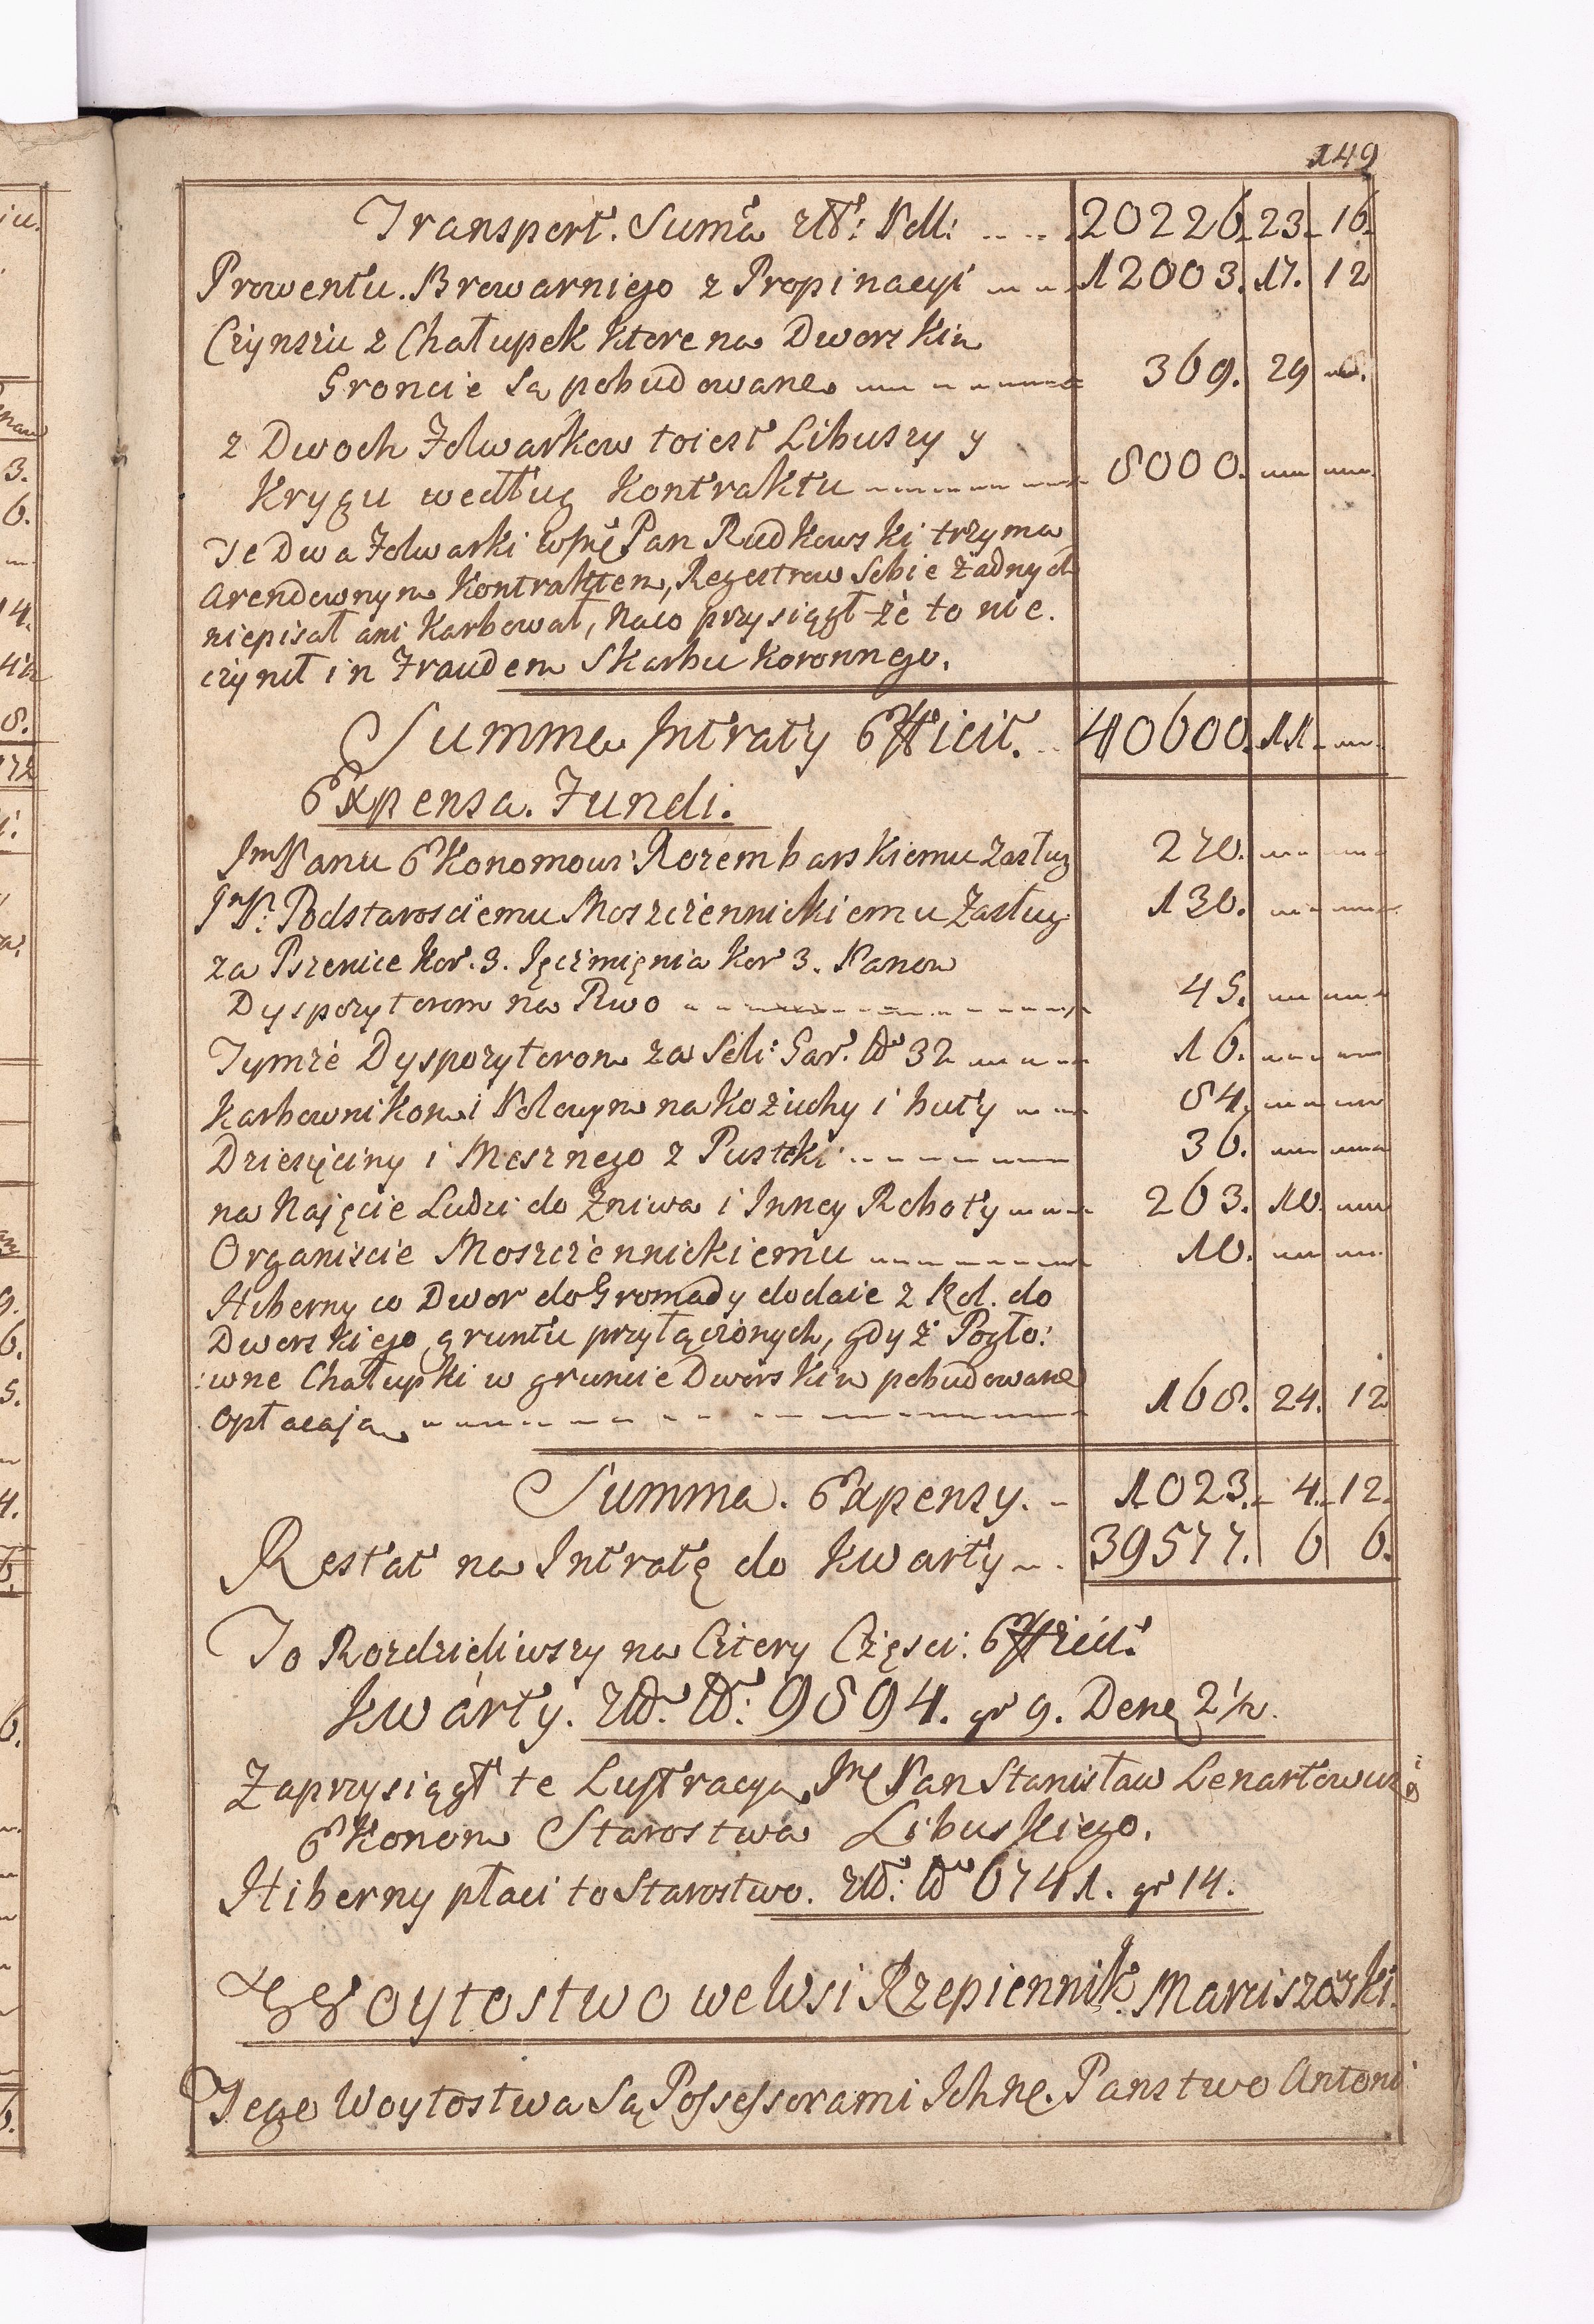 149
Transport. Suma złł: Poll: .... 20226. 23. 16.
Prowentu. Browarniego z Propinacyi 12003. 17. 12
Czynszu z Chałupek ktore na Dworskim
Groncie są pobudowane 369. 29 8.
z Dwoch Folwarkow toiest Libuszy y
Krygu według Kontraktu 8000.
Te Dwa Folwarki Pan Rudkowski trzyma
Arendownym Kontraktem, Regestrow Sobie Żadnych
niepisał ani Karbował, Naco przysiągł że to nie.
czynił in Fraudem Skarbu Koronnego.
Summa Intraty Efficit. 40600. 11.
Expensa. Fundi.
Jm Panu Ekonomowi Rozembarskiemu Zasług 270.
Jm P. Podstarosciemu Moszczennickiemu Zasług 130.
za Pszenice Kor. 3. Jęczmięnia Kor 3. Panom
Dyspozytorom na Piwo 45.
Tymże Dyspozytorom za Soli: Gar. 32 16.
Karbownikom i Polowym na Kożuchy i buty 84.
Dziesięciny i Mesznego z Pustek: 36.
na Najęcie Ludzi do Żniwa i Inney Roboty 263. 10.
Organiscie Moszczennickiemu 10.
Hiberny co Dwor do Gromady dodaie z Rol. do
Dworskiego gruntu przyłączonych, gdyż Pogło:
:wne Chałupki w gruncie Dworskim pobudowane
opłacaja 168. 24. 12
Summa. Expensy. 1023. 4. 12.
Restat na Intratę do Kwarty 39577. 6 6.
To Rozdzieliwszy na Cztery Częsci: Efficit:
Kwarty. 9894. gr 9. Dene 2½.
Zaprzysiągł te Lustracya Jme Pan Stanisław Lenartowicz
Ekonom Starostwa Libuskiego.
Hiberny płaci to Starostwo. 6741. gr 14.
Woytostwo we Wsi Rzepiennik. Marciszoski.
Tego Woytostwa są Possessorami Ichne. Panstwo Antoni